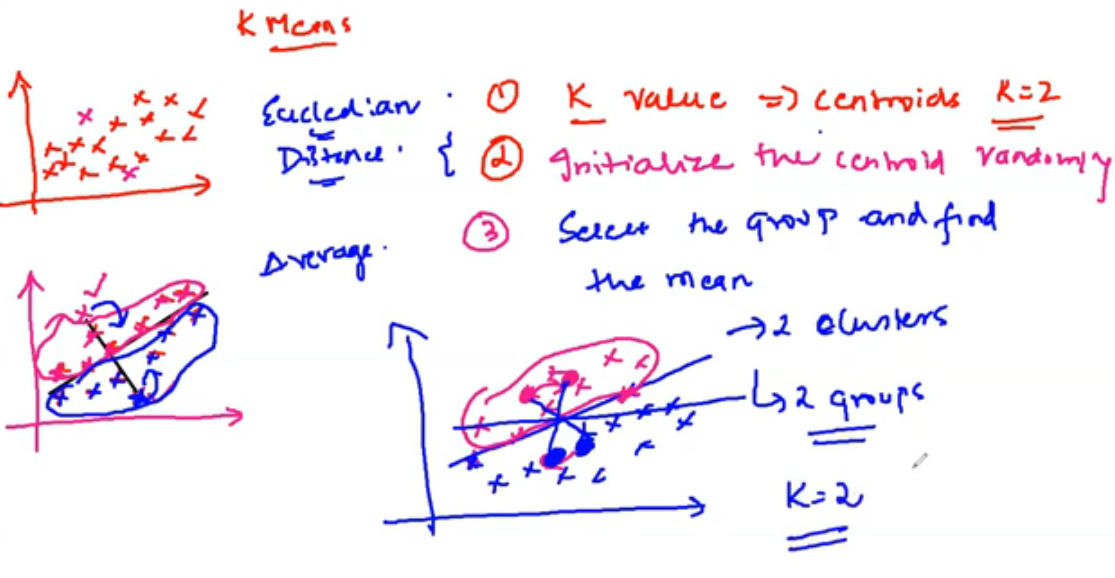 K Means
Eucledian
Distance.
① K value => centroids K=2
② Initialize the centroid randomly
③ Select the group and find
the mean
Average.
→ 2 clusters
↳ 2 groups
K=2